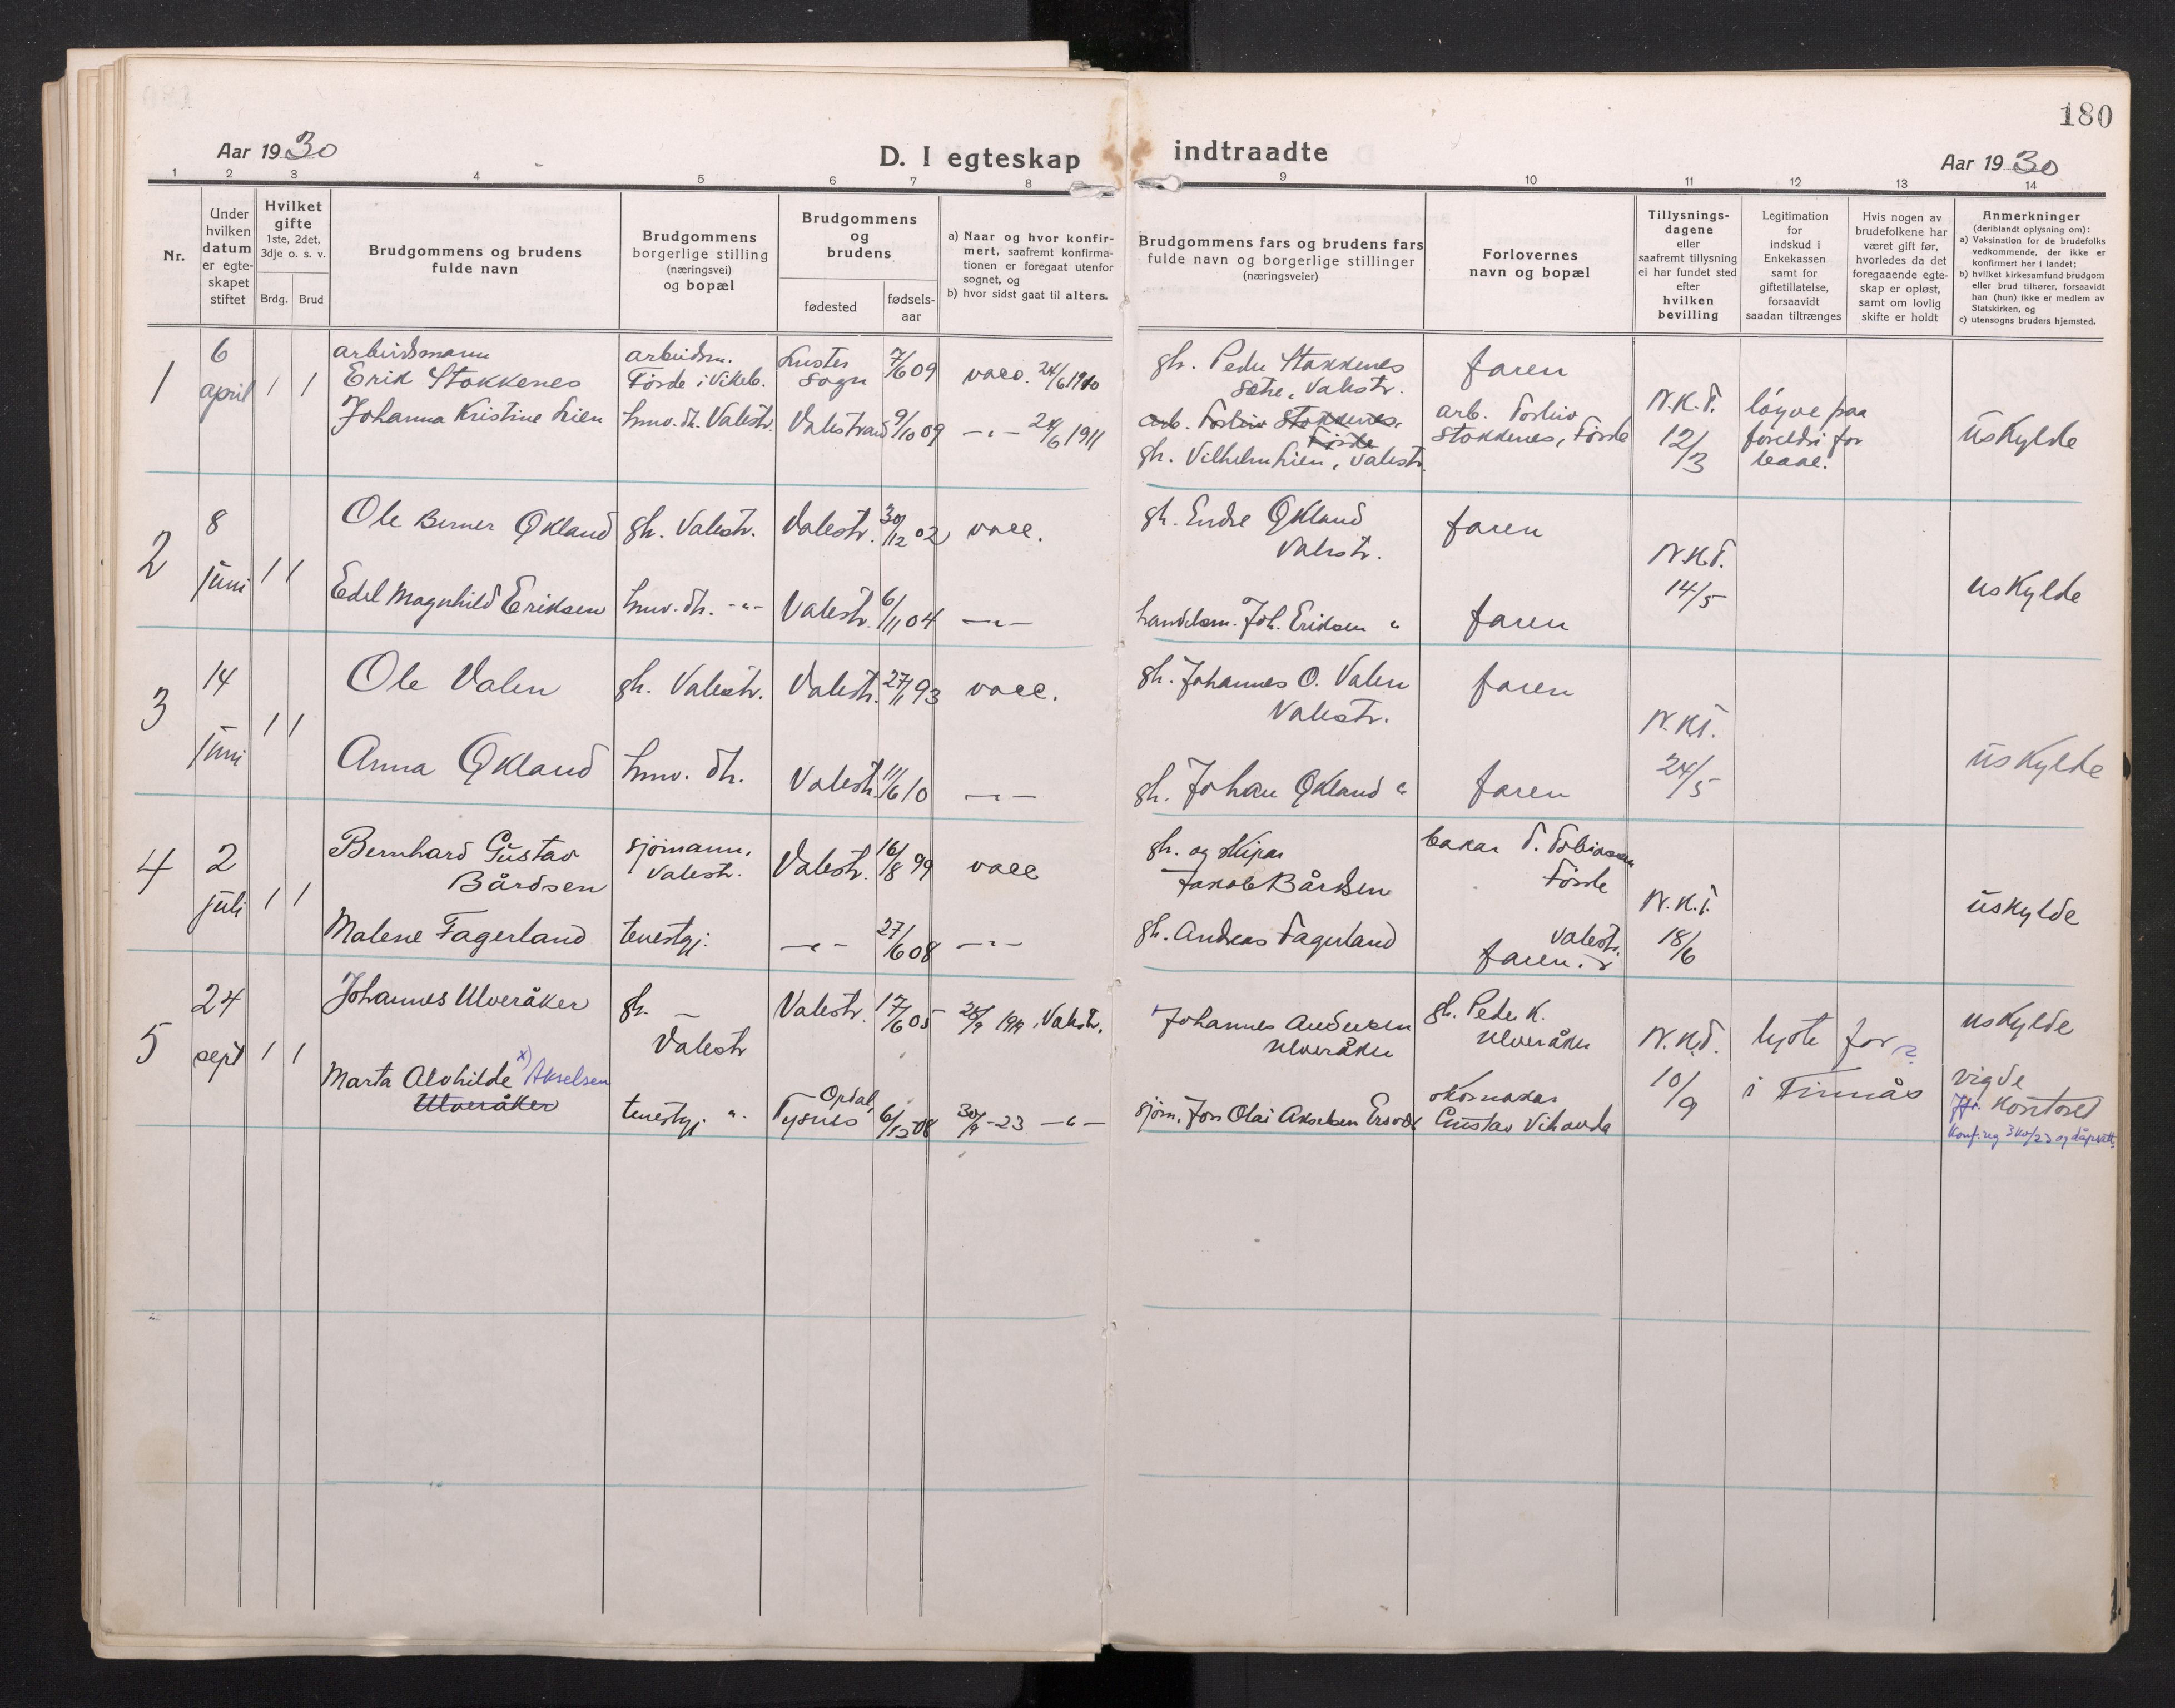 180
Aar 1930
D. I egteskap indtraadte
Aar 1930
1 2 3 4 5 6 7 8 9 10 11 12 13 14
Nr.
Under hvilken datum er egteskapet stiftet
Hvilket gifte
1ste, 2det, 3dje o. s. v.
Brdg. Brud
Brudgommens og brudens fulde navn
Brudgommens borgerlige stilling (næringsvei) og bopæl
Brudgommens og brudens
fødested
fødsels-aar
a) Naar og hvor konfirmert, saafremt konfirmationen er foregaat utenfor sognet, og
b) hvor sidst gaat til alters.
Brudgommens fars og brudens fars fulde navn og borgerlige stillinger (næringsveier)
Forlovernes navn og bopæl
Tillysningsdagene eller saafremt tillysning ei har fundet sted efter hvilken bevilling
Legitimation for indskud i Enkekassen samt for giftetillatelse, forsaavidt saadan tiltrænges
Hvis nogen av brudefolkene har været gift før, hvorledes da det foregaaende egteskap er opløst, samt om lovlig skifte er holdt
Anmerkninger (deriblandt oplysning om):
a) Vaksination for de brudefolks vedkommende, der ikke er konfirmert her i landet;
b) hvilket kirkesamfund brudgom eller brud tilhører, forsaavidt han (hun) ikke er medlem av Statskirken, og
c) utensogns bruders hjemsted.
1
6 april
1 1
arbeidsmann
Erik Stokkenes
arbeidsm.
Førde i Vikeb.
Luster
Sogn
7/6 09
vacc. 24/6 1910
gb. Peder Stokkenes
Sætre, Valestr.
faren
Johanna Kristine Lien
husv. dt. Valestr.
Valestrand
9/10 09
-"- 24/6 1911
arb. Torleiv Stokkenes, Førde
gb. Vilhelm Lien, Valestr.
arb. Torleiv
Stokkenes, Førde
N.K.T.
12/3
løyve paa
foreldri for
uskylde
2
8 juni
1 1
Ole Berner Økland
gb. Valestr.
Valestr.
30/12 02
vacc.
gb. Endre Økland
Valestr.
faren
Edel Magnhild Eriksen
husv. dt. -"-
Valestr.
6/11 04
-"-
handelsm. Joh. Eriksen "
faren
N.K.T.
14/5
uskylde
3
14 juni
1 1
Ole Valen
gb. Valestr.
Valestr.
27/11 93
vacc.
gb. Johannes O. Valen
Valestr.
faren
Anna Økland
husv. dt.
Valestr.
11/6 10
-"-
gb. Johan Økland "
faren
N.K.T.
24/5
uskylde
4
2 juli
1 1
Bernhard Gustav
Bårdsen
sjømann,
Valestr.
Valestr.
16/8 99
vacc
gb. og skipar
Jakob Bårdsen
bakar T. Tobiassen
Førde
Malene Fagerland
tenestgj.
-"-
27/6 08
-"-
gb. Andreas Fagerland
Valestr.
faren.
N.K.T.
18/6
uskylde
5
24 sept
1 1
Johannes Ulveråker
gb. -
Valestr
Valestr.
17/6 05
28/9 1919, Valestr.
Johannes Andersen
Ulveråker
gb. Peder K.
Ulveråker
Marta Alvhilde x) Akselsen
Ulveråker
tenestgj. "
Opdal,
Tysnes
6/12 08
30/9 -23 -"-
sjøm. Jon Olai Akselsen
skomakar
Gustav Vihovda
N.K.T.
10/9
lyste for
i Finnås
uskylde
vigde
på kontoret
Konf. reg 30/9 23 og dåpsatt.